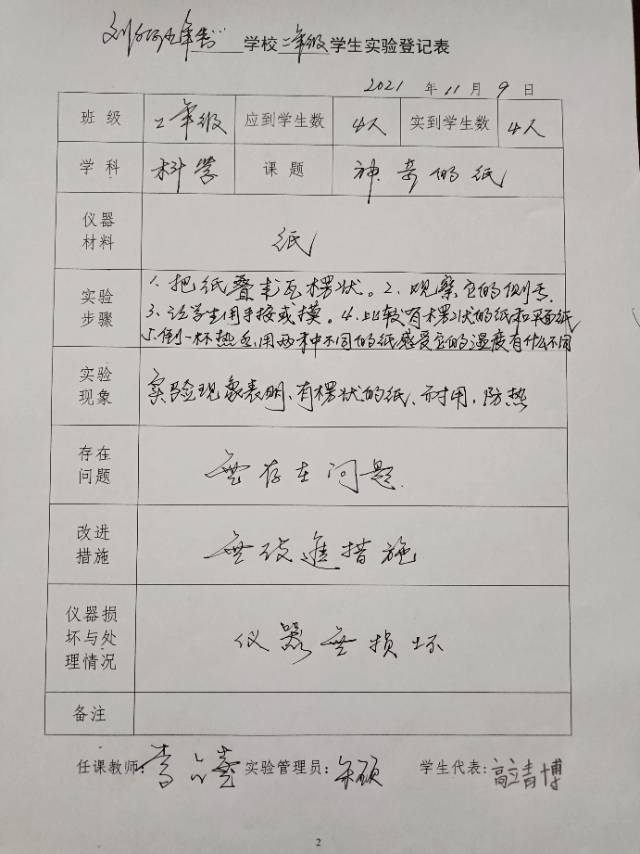 学校二年级学生实验登记表
2021 年 11 月 9 日
班 级 2年级 应到学生数 4人 实到学生数 4人
学 科 科学 课 题 神奇的纸
仪器材料 纸
实验步骤 1、把纸叠丰瓦楞状。2、观察它的侧
3、让学生用手按或摸。4、比较有楞状的纸和平面纸
5、倒一杯热 用两种不同的纸感受它的温度有什么不同
实验现象 实验现象表明、有楞状的纸、耐用,防热
存在问题 無存在问题.
改进措施 無改進措施
仪器损坏与处理情况 仪器無损坏
备注
任课教师: 李 实验管理员: 硕 学生代表: 高立青博
2